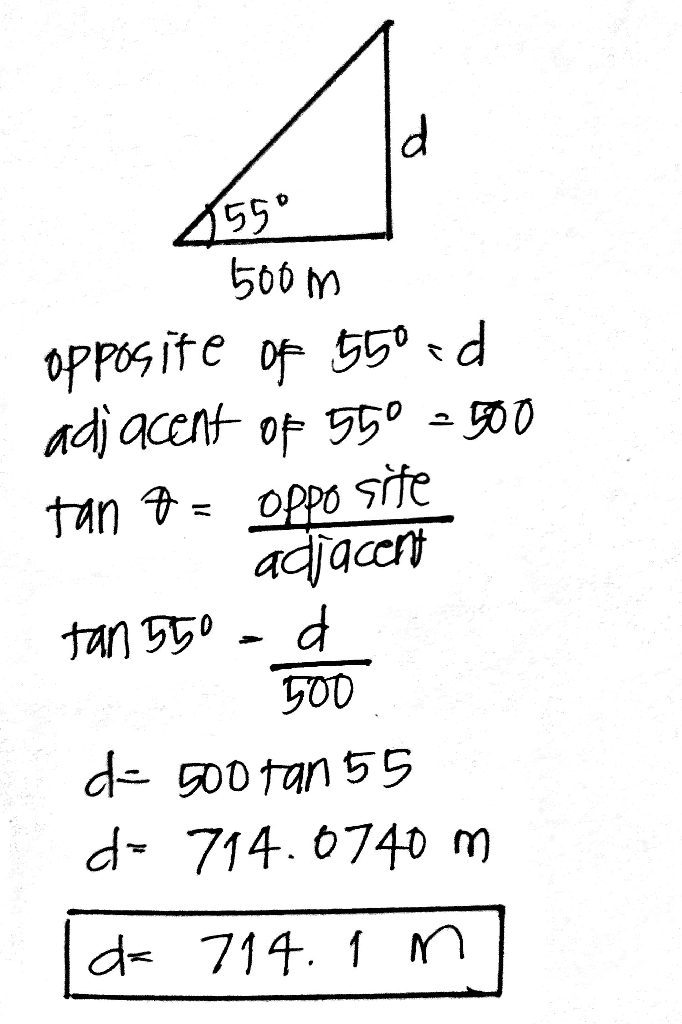 d
55°
500 m
opposite of 55° = d
adjacent of 55° = 500
tan θ = opposite
adjacent
tan 55° = d
500
d = 500 tan 55
d = 714.0740 m
d = 714.1 m